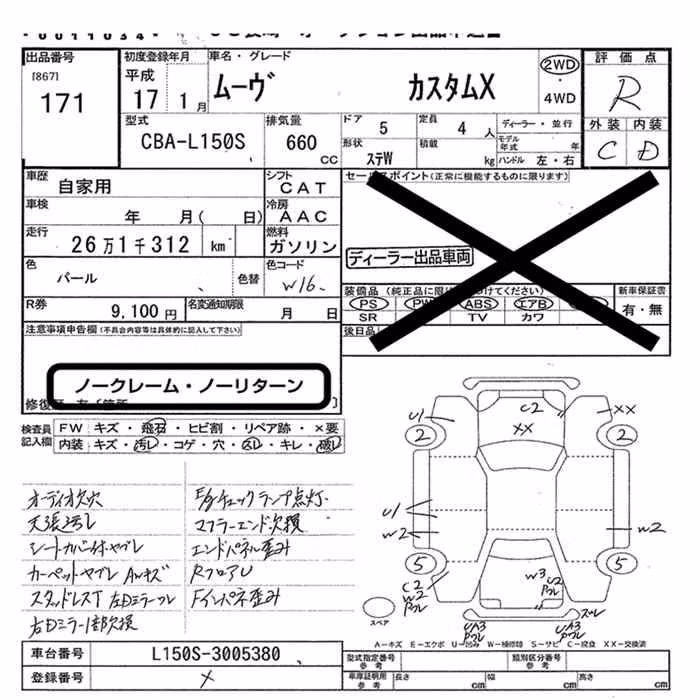 出品番号
[867]
171
初度登録年月
平成
17 1月
車名・グレード
ムーヴ カスタムX
2WD
・
4WD
評価点
R
外装 内装
C D
型式
CBA-L150S
排気量
660 cc
ドア 5
定員 4 人
ディーラー・並行
モデル年式 年
形状 ステW
積載 kg
ハンドル 左・右
車歴 自家用
シフト CAT
車検 年 月( 日)
冷房 AAC
走行 26万1千312 km
燃料 ガソリン
色 パール 色替
色コード W16
R券 9,100円
名変通知期限 月 日
セールスポイント(正常に機能するものに限ります)
ディーラー出品車両
新車保証書
有・無
PS PW ABS エアB
SR TV カワ
後日品
注意事項申告欄(不具合内容等は具体的に記入して下さい)
ノークレーム・ノーリターン
検査員記入欄
FW キズ・飛石・ヒビ割・リペア跡・×要
内装 キズ・汚レ・コゲ・穴・スレ・キレ・破レ
オーディオ欠穴
天張汚レ
シートカバー付ヤブレ
カーペットヤブレ AWキズ
スタッドレスT 左Dミラーフレ
右Dミラー1部欠損
E/gチェックランプ点灯
マフラーエンド欠損
エンドパネル歪み
RフロアU
Fインパネ歪み
C2
XX
U1
XX
2
2
U1
W2
W2
5
5
C2
W2
Pフレ
W3
U2
Pフレ
ズレ
UA3
Pフレ
UA3
Pフレ
スペア
A-キズ E-エクボ U-凹み W-補修跡 S-サビ C-腐食 XX-交換済
車台番号 L150S-3005380
登録番号 ×
型式指定番号 参考
類別区分番号 参考
車庫証明用参考 長さ cm 幅 cm 高さ cm